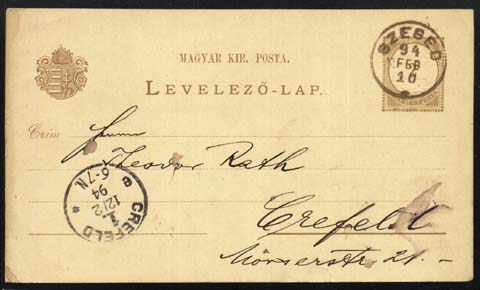 MAGYAR KIR. POSTA.
LEVELEZŐ-LAP.
SZEGED
94
FEB
10
Czím
Herrn
Theodor Rath
Crefeld
Mörserstr 21.–
CREFELD
1
12/2
94
6-7N
e